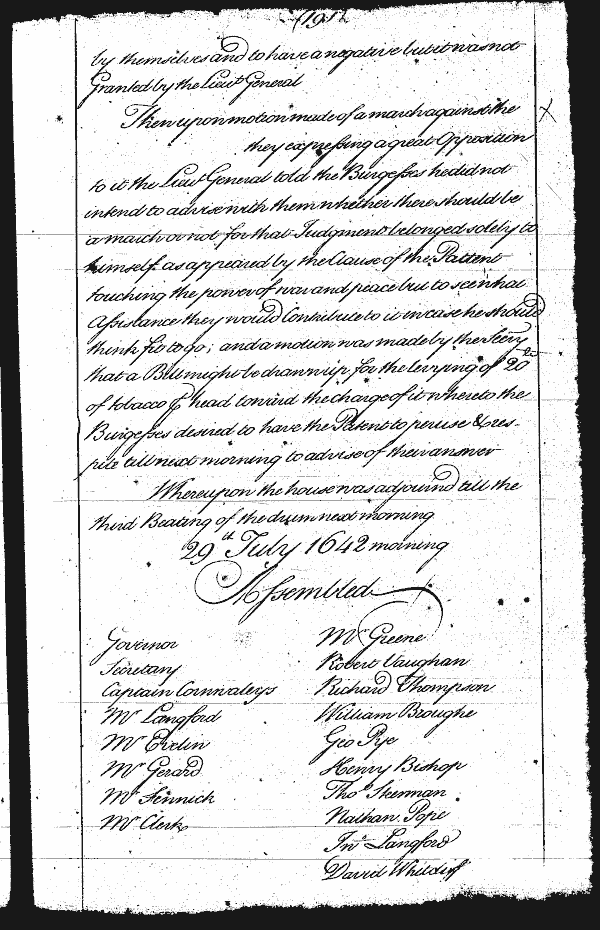 (191)
by themselves and to have a negative but it was not
Granted by the Lieut General
Then upon motion made of a march against the
they expressing a great Opposition
to it the Lieut General told the Burgesses he did not
intend to advise with them whether there should be
a march or not for that Judgment belonged solely to
himself as appeared by the Clause of the Pattent
touching the power of war and peace but to see what
Assistance they would Contribute to it in case he should
think fit to go; and a motion was made by the Secry
that a Bill might be drawn up for the levying of 20 lb
of tobacco ⅌ head toward the charge of it whereto the
Burgesses desired to have the Patent to peruse & res-
pite till next morning to advise of their answer
Whereupon the house was adjournd till the
third Beating of the drum next morning
29th July 1642 morning
Assembled
Governor
Secretary
Captain Cornwaleys
Mr Langford
Mr Evelin
Mr Gerard
Mr Fennick
Mr Clerk
Mr Greene
Robert Vaughan
Richard Thompson
William Broughe
Geo Pye
Henry Bishop
Tho
Nathan. Pope
Jno Langford
David